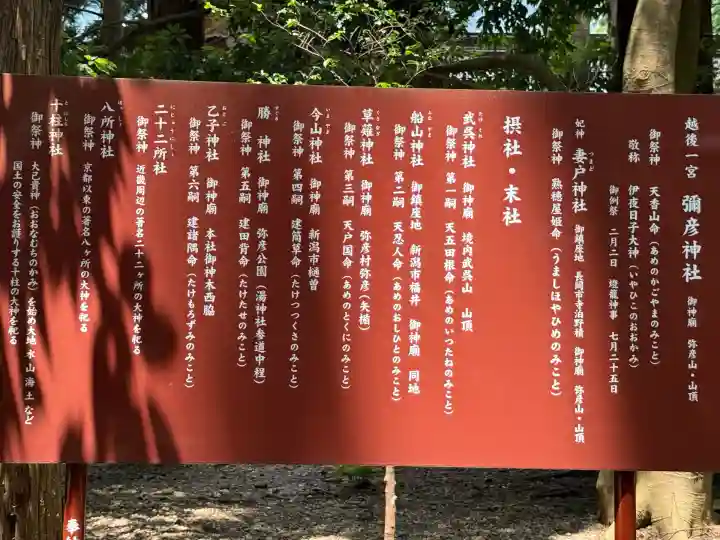 越後一宮 彌彦神社 御神廟 弥彦山・山頂
御祭神 天香山命(あめのかごやまのみこと)
敬称 伊夜日子大神(いやひこのおおかみ)
御例祭 二月二日 燈籠神事 七月二十五日
妃神 妻戸神社 御鎮座地 長岡市寺泊野積 御神廟 弥彦山・山頂
つまど
御祭神 熟穂屋姫命(うましほやひめのみこと)
摂社・末社
武呉神社 御神廟 境内武呉山 山頂
たけ くれ
御祭神 第一嗣 天五田根命(あめのいつたねのみこと)
船山神社 御鎮座地 新潟市福井 御神廟 同地
ふな やま
御祭神 第二嗣 天忍人命(あめのおしひとのみこと)
草薙神社 御神廟 弥彦村弥彦(矢楯)
御祭神 第三嗣 天戸国命(あめのとくにのみこと)
今山神社 御神廟 新潟市樋曽
いま やま
御祭神 第四嗣 建筒草命(たけつつくさのみこと)
勝 神社 御神廟 弥彦公園(湯神社参道中程)
御祭神 第五嗣 建田背命(たけたせのみこと)
乙子神社 御神廟 本社御神木西脇
おと ご
御祭神 第六嗣 建諸隅命(たけもろずみのみこと)
二十二所社
にじゅうにしょ
御祭神 近畿周辺の著名二十二ヶ所の大神を祀る
八所神社
はっしょ
御祭神 京都以東の著名八ヶ所の大神を祀る
十柱神社
と はしら
御祭神 大己貴神(おおなむちのかみ)を始め大地 木 山 海 土 など
国土の安全をお護りする十柱の大神を祀る
奉